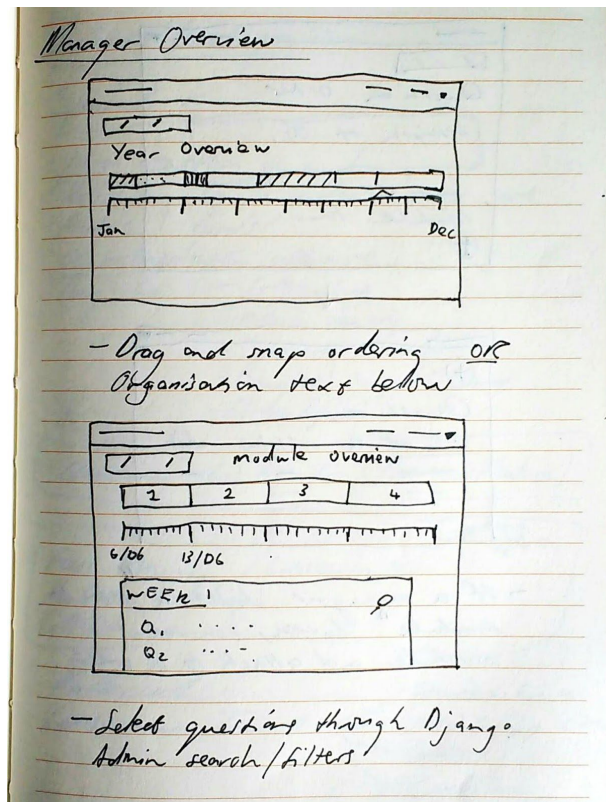 Manager Overview
Year Overview
Jan Dec
- Drag and snap ordering OR
Organisation text below
module overview
1 2 3 4
6/06 13/06
WEEK 1
Q1
Q2
- Select questions through Django
Admin search/filters